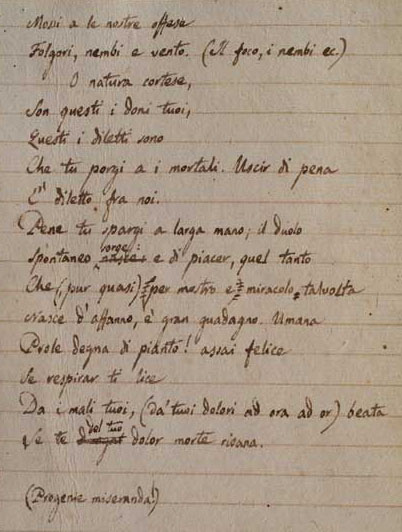 Mossi a le nostre offese
Folgori, nembi e vento. (Il foco, i nembi ec.)
O natura cortese,
Son questi i doni tuoi,
Questi i diletti sono
Che tu porgi a i mortali. Uscir di pena
E' diletto fra noi.
Pene tu spargi a larga mano; il duolo
sorge:
Spontaneo nasce: e di piacer, quel tanto
Che (pur quasi) per mostro e miracolo talvolta
Nasce d'affanno, è gran guadagno. Umana
Prole degna di pianto! assai felice
Se respirar ti lice
Da i mali tuoi, (da' tuoi dolori ad ora ad or) beata
del tuo
Se te dolor morte risana.
(Progenie miseranda!)